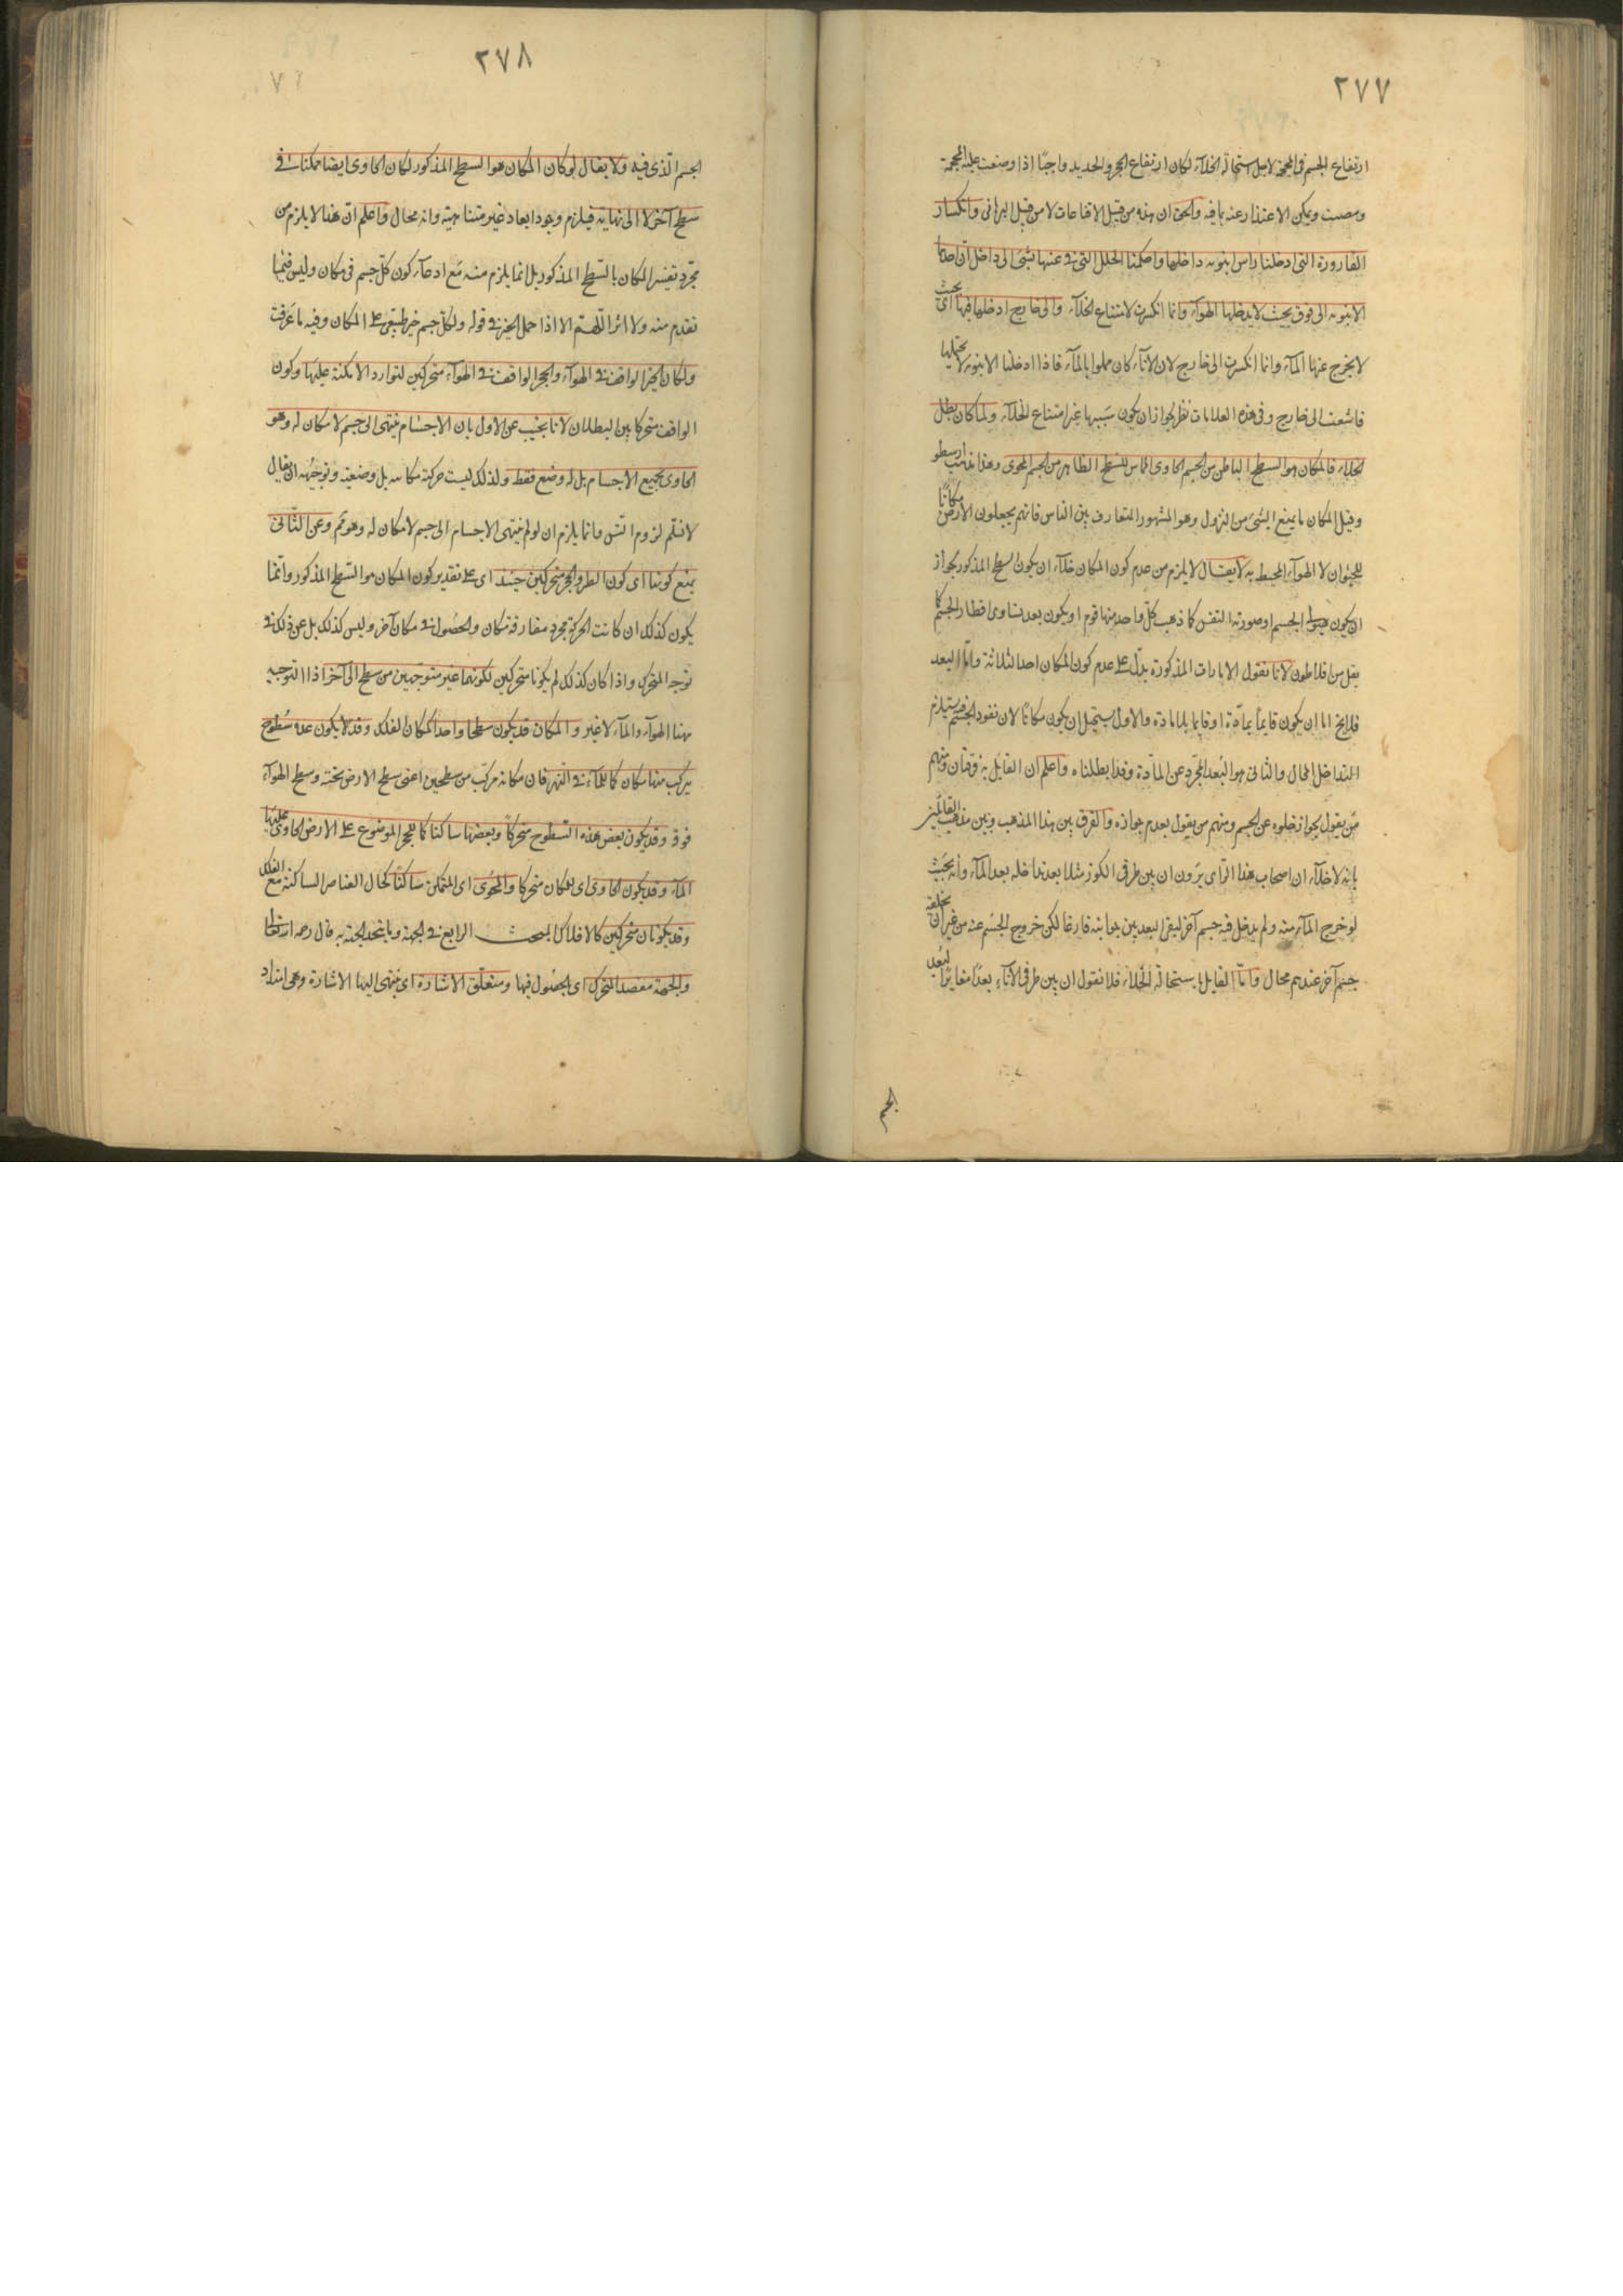 ٢٧٧
ارتفاع الجسم فى المحجمة لاجل استحالة الخلآء لكان ارتفاع الحجر والحديد واجبًا اذا وضعت عليه المحجمة
ومصت ويمكن الاعتذار عنه بما فيه والحق ان هذه من قبيل الاقناعات لا من قبيل البرهانى وانكسار
القارورة التى ادخلنا راس انبوبه داخلها واحكمنا الخلل التى فى عنقها بشئ الى داخل ان جذبنا
الانبوبه الى فوق بحيث لا يدخلها الهوآء وانما انكسرت لامتناع الخلآء والى خارج ادخلها فيها اى بحيث
لا يخرج عنها المآء وانما انكسرت الى خارج لان الانآء كان مملوا بالمآء فاذا ادخلنا الانبوبة لا يحتملها
فانشقت الى خارج وفى هذه العلامات نظر لجواز ان يكون سببها غير امتناع الخلآء ولما كان بطل
الخلاء فالمكان هو السطح الباطن من الجسم الحاوى المماس للسطح الظاهر من الجسم المحوى وهذا مذهب ارسطو
وقيل المكان ما يمنع الشئ من النزول وهو المشهور المتعارف بين الناس فانهم يجعلون الارض مكانًا
للحيوان لا الهوآء المحيط به لا يقال لا يلزم من عدم كون المكان خلآء ان يكون السطح المذكور لجواز
ان يكون هيولى الجسم او صورته النفس كما ذهب كل واحد منها قوم او يكون بعد يساوى اقطار الجسم كما
نقل من افلاطون لانا نقول الامارات المذكورة يدل على عدم كون المكان احد الثلاثة واما البعد
فلا يخ اما ان يكون قايمًا بمادة او قايما بلا مادة والاول يستحيل ان يكون مكانًا لان نفوذ الجسم فيه يستلزم
التداخل المحال والثانى هو البعد المجرد عن المادة وقد ابطلناه واعلم ان القايل به فرقتان منهم
من يقول بجواز خلوه عن الجسم ومنهم من يقول بعدم جوازه والفرق بين هذا المذهب وبين مذهب القائلين
بانه لا خلآء ان اصحاب هذا الراى يرون ان بين طرفى الكوز مثلا بعد تداخله بعد المآء وانه بحيث
لو خرج المآء منه ولم يدخل فيه جسم آخر لبقى البعد بين جوانبه فارغا لكن خروج الجسم عنه من غير ان يخلفه
جسم آخر عندهم محال واما القايل باستحالة الخلاء فلا نقول ان بين طرفى الانآء بعدًا مغايرًا لبعد
الجسم
٢٧٨
الجسم الذى فيه ولا يقال لو كان المكان هو السطح المذكور لكان الحاوى ايضا متمكنا فى
سطح آخر لا الى نهاية فيلزم وجود ابعاد غير متناهية وانه محال واعلم ان هذا لا يلزم من
مجرد تفسير المكان بالسطح المذكور بل انما يلزم منه مع ادعآء كون كل جسم فى مكان وليس فيما
تقدم منه ولا اثر اللهم الا اذا حمل الحيز فى قوله ولكل جسم حيز طبيعى على المكان وفيه ما عرفت
ولكان الطير الواقف فى الهوآء والحجر الواقف فى الهوآء متحركين لتوارد الامكنة عليها وكون
الواقف متحركا بين البطلان لانا نجيب عن الاول بان الاجسام ينتهى الى جسم لا مكان له وهو
الحاوى بجميع الاجسام بل له وضع فقط ولذلك ليست حركته مكانية بل وضعية وتوجيهه ان يقال
لا نسلم لزوم التس وانما يلزم ان لو لم ينتهى الاجسام الى جسم لا مكان له وهو مم وعن الثانى
يمنع كونهما اى كون الطير والحجر متحركين حينئذ اى على تقدير كون المكان هو السطح المذكور وانما
يكون كذلك ان كانت الحركة مجرد مفارقة مكان والحصول فى مكان آخر وليس كذلك بل عن ذلك مع
توجه المتحرك واذا كان كذلك لم يكونا متحركين لكونهما غير متوجهين من سطح الى آخر اذ التوجيه
ههنا الهوآء والمآء لا غير والمكان قد يكون سطحا واحدا كمكان الفلك وقد لا يكون عدة سطوح
يتركب منها مكان كما للمآء فى النهر فان مكانه مركب من سطحين اعنى سطح الارض تحته وسطح الهوآء
فوقه وقد يكون بعض هذه السطوح متحركًا وبعضها ساكنا كما للحجر الموضوع على الارض الجارى عليها
المآء وقد يكون الحاوى اى المكان متحركا والمحوى اى المتمكن ساكنًا كحال العناصر الساكنة مع الفلك
وقد يكونان متحركين كالافلاك المبحث الرابع فى الجهة وما يتحدد الجهة به قال رحمه الله تعالى
والجهة مقصد المتحرك اى بالحصول فيها ومتعلق الاشارة اى ينتهى اليها الاشارة وهى امتداد